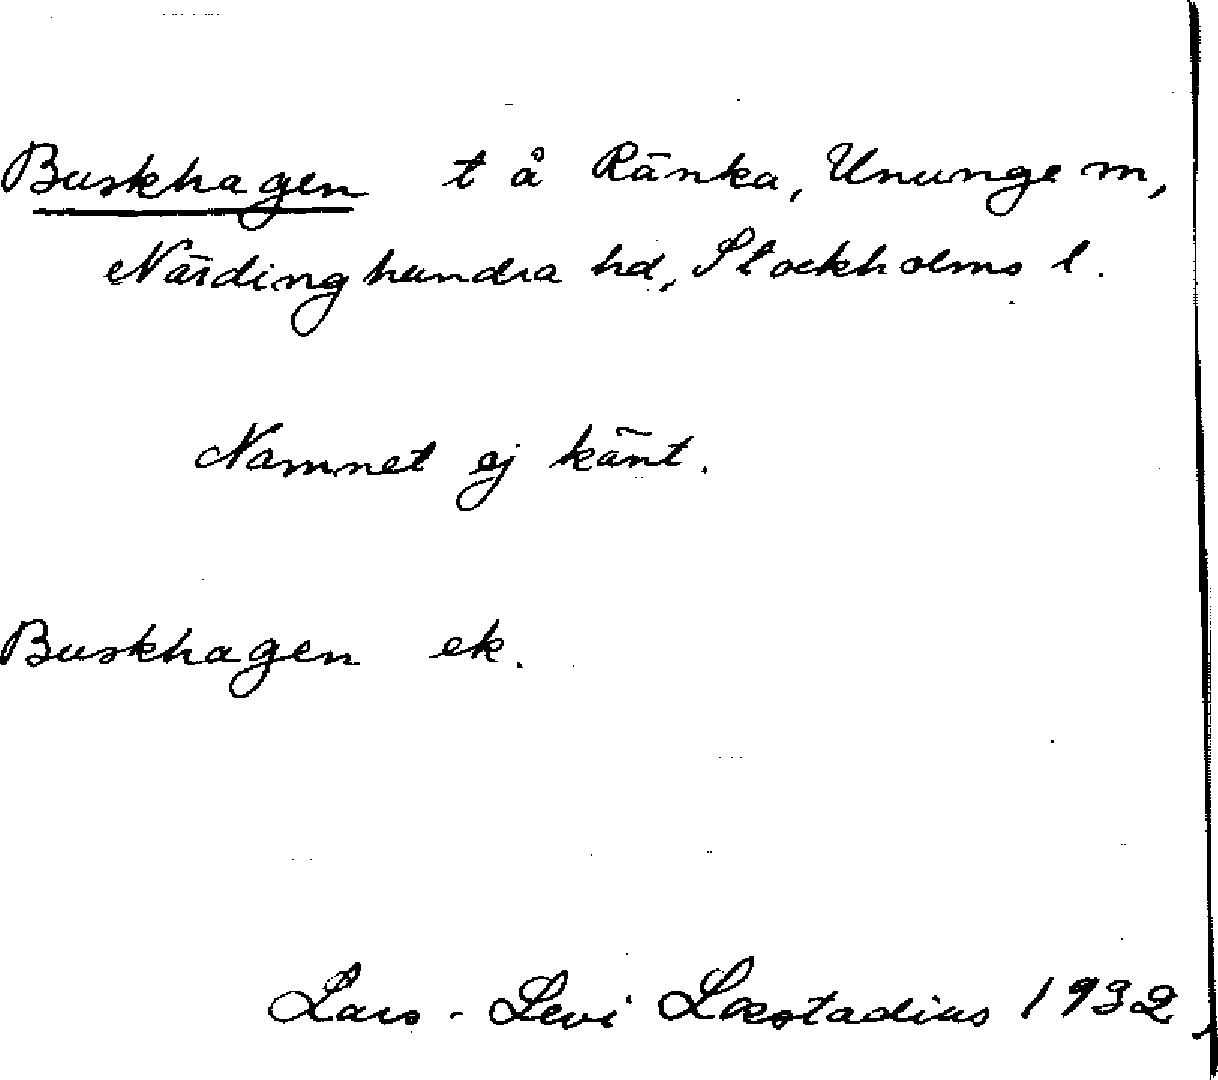 Buskhagen t å Ränka, Ununge m,
Närdinghundra hd, Stockholms l.
Namnet ej känt.
Buskhagen ek.
Lars-Levi Læstadius 1932